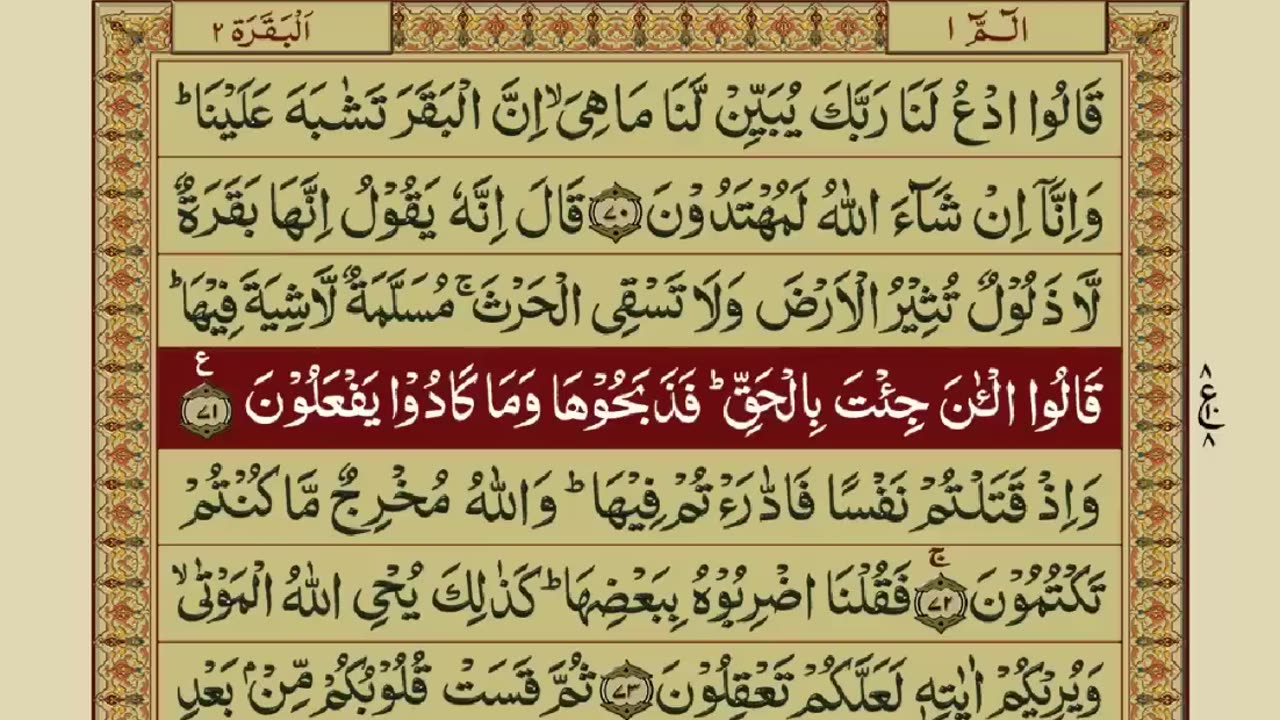 الٓـمّٓ ١
اَلْبَقَرَة ٢
قَالُوا ادْعُ لَنَا رَبَّكَ يُبَيِّنْ لَّنَا مَا هِىَ ۙ اِنَّ الْبَقَرَ تَشٰبَهَ عَلَيْنَا ؕ
وَاِنَّاۤ اِنْ شَآءَ اللّٰهُ لَمُهْتَدُوْنَ ٧٠ قَالَ اِنَّهٗ يَقُوْلُ اِنَّهَا بَقَرَةٌ
لَّا ذَلُوْلٌ تُثِيْرُ الْاَرْضَ وَلَا تَسْقِى الْحَرْثَ ۚ مُسَلَّمَةٌ لَّا شِيَةَ فِيْهَا ؕ
قَالُوا الْـٰٔنَ جِئْتَ بِالْحَقِّ ؕ فَذَبَحُوْهَا وَمَا كَادُوْا يَفْعَلُوْنَ ٧١ ع
٨ ع ١٠ ٨
وَاِذْ قَتَلْتُمْ نَفْسًا فَادّٰرَءْتُمْ فِيْهَا ؕ وَاللّٰهُ مُخْرِجٌ مَّا كُنْتُمْ
تَكْتُمُوْنَ ٧٢ ۚ فَقُلْنَا اضْرِبُوْهُ بِبَعْضِهَا ؕ كَذٰلِكَ يُحْىِ اللّٰهُ الْمَوْتٰى ۙ
وَيُرِيْكُمْ اٰيٰتِهٖ لَعَلَّكُمْ تَعْقِلُوْنَ ٧٣ ثُمَّ قَسَتْ قُلُوْبُكُمْ مِّنْۢ بَعْدِ